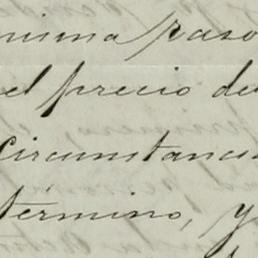 misma paso
el precio de
Circunstanci
término, y